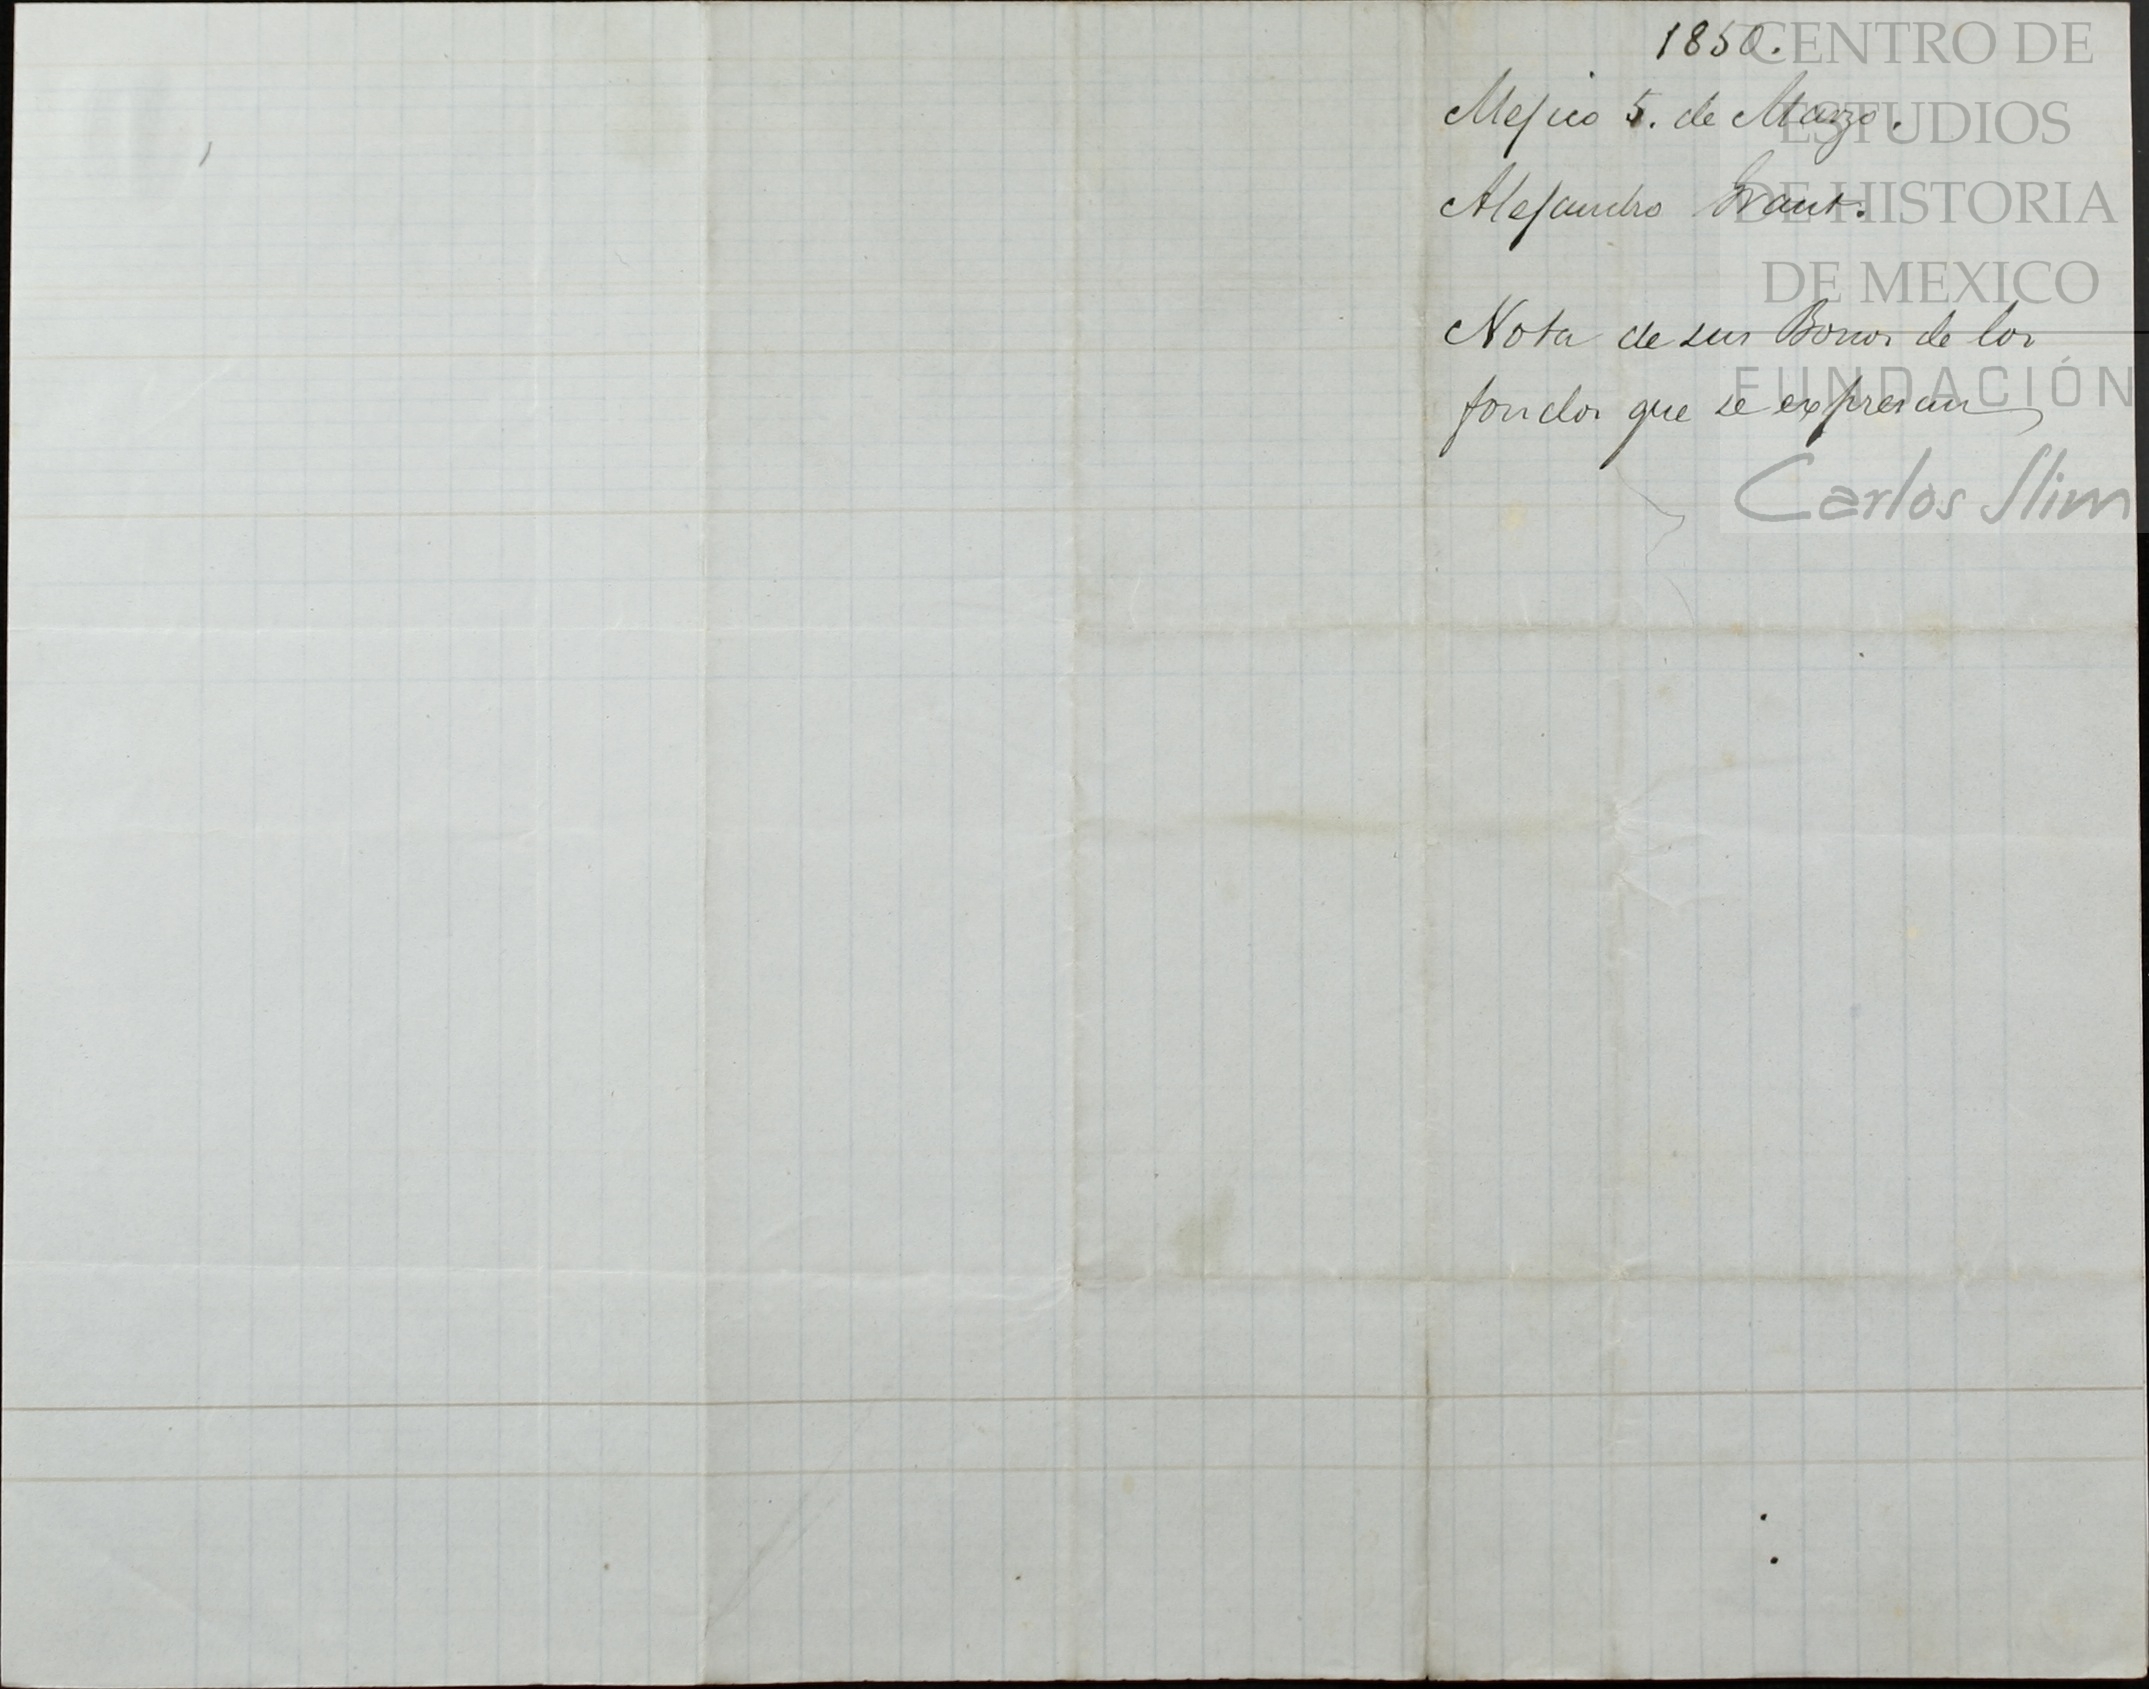 1850.
Mejico 5. de Marzo.
Alejandro Grant.
Nota de sus Bonos de los
fondos que se expresan
CENTRO DE
ESTUDIOS
DE HISTORIA
DE MEXICO
FUNDACIÓN
Carlos Slim